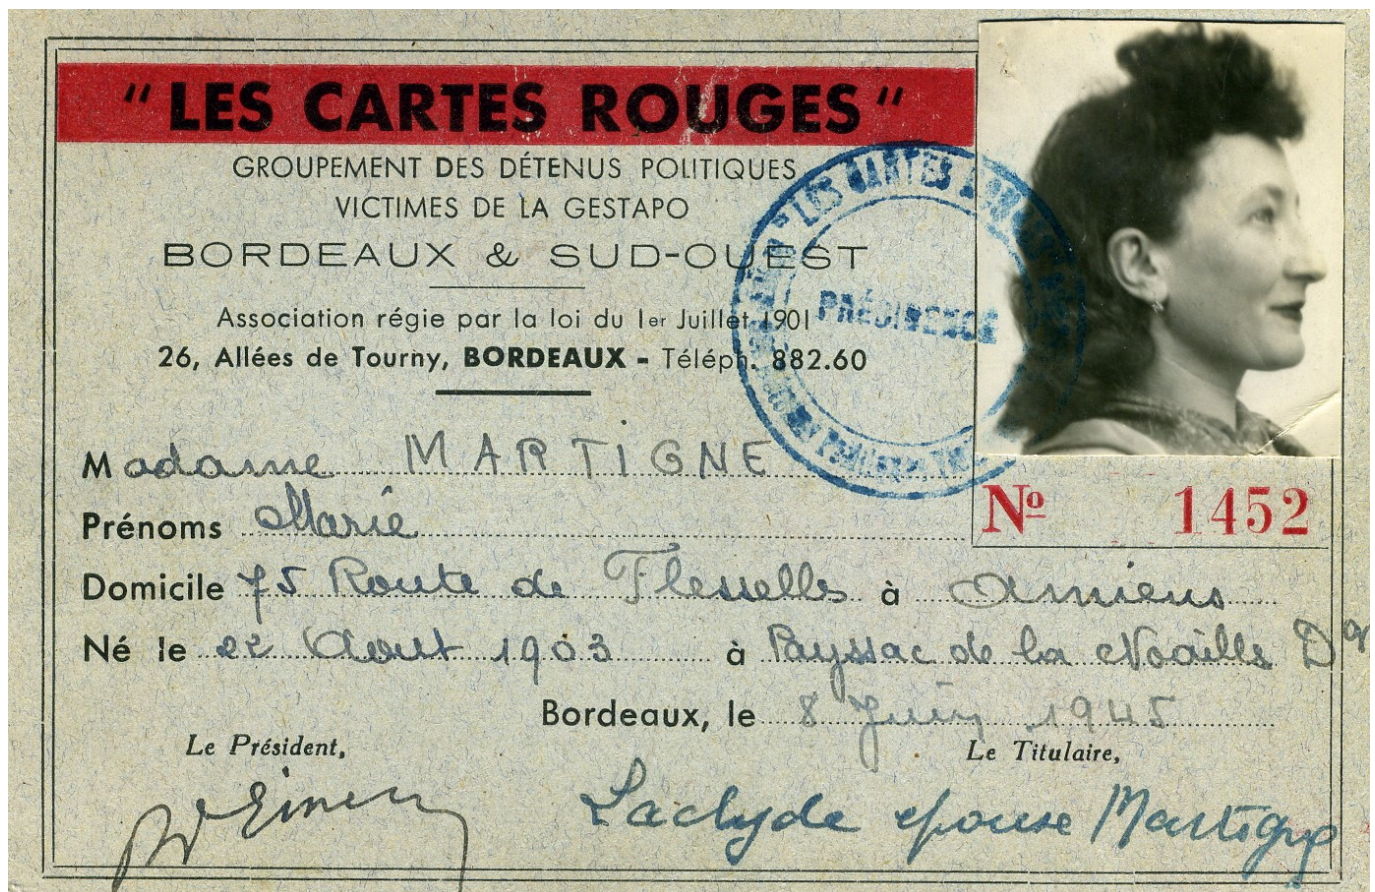 "LES CARTES ROUGES"
GROUPEMENT DES DÉTENUS POLITIQUES
VICTIMES DE LA GESTAPO
BORDEAUX & SUD-OUEST
Association régie par la loi du 1er Juillet 1901
26, Allées de Tourny, BORDEAUX - Téléph. 882.60
PRÉSIDENCE
Madame MARTIGNE
Nº 1452
Prénoms Marie
Domicile 75 Route de Flesselles à Amiens
Né le 22 Aout 1903 à Payssac de la Noaille D
Bordeaux, le 8 Juin 1945
Le Président,
Le Titulaire,
Lachyde epouse Martigne